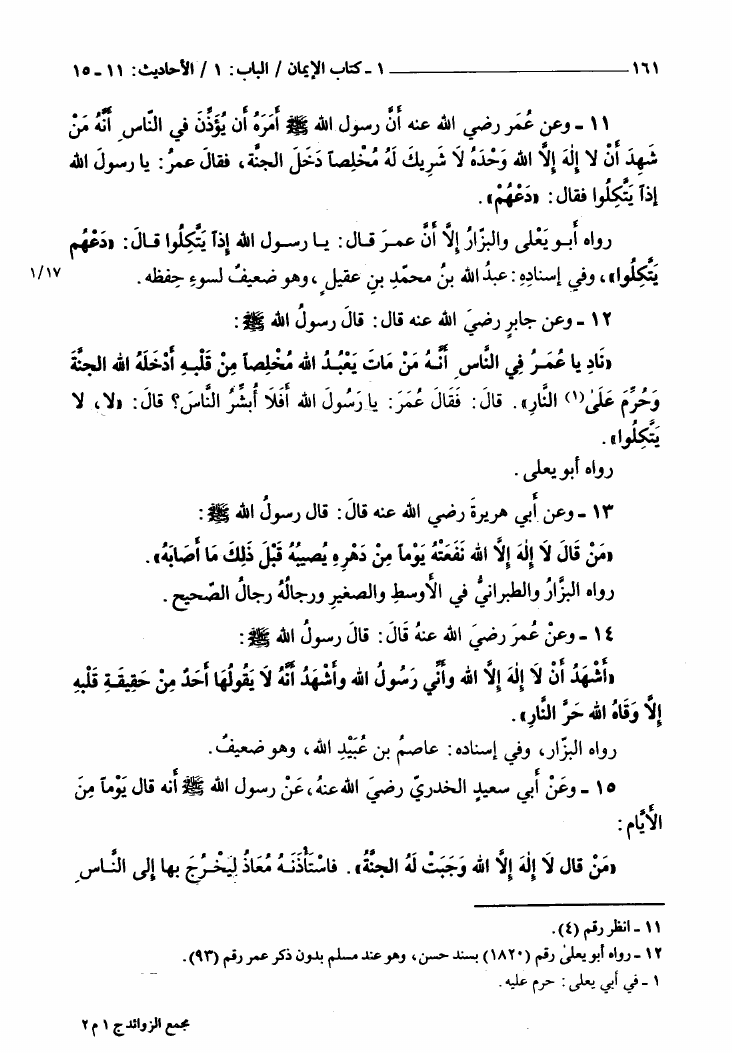 ١٦١ ــــــــ ١ - كتاب الإيمان / الباب: ١ / الأحاديث: ١١ - ١٥
١١ - وعن عُمَر رضي الله عنه أَنَّ رسول الله ﷺ أَمَرَهُ أَن يُؤَذِّنَ في النّاس أَنَّهُ مَنْ
شَهِدَ أَنْ لا إِلٰهَ إِلَّا الله وَحْدَهُ لَا شَرِيكَ لَهُ مُخْلِصاً دَخَلَ الجنَّة، فقالَ عمرُ: يا رسولَ الله
إِذاً يَتَّكِلُوا فقال: «دَعْهُمْ».
رواه أبو يَعْلى والبزّارُ إِلَّا أَنَّ عمرَ قال: يا رسول الله إِذاً يَتَّكِلُوا قالَ: «دَعْهُم
يَتَّكِلُوا»، وفي إسنادِهِ: عبدُ الله بنُ محمّدِ بنِ عقيلٍ، وهو ضعيفٌ لسوءِ حِفظه. ١/١٧
١٢ - وعن جابرٍ رضيَ الله عنه قال: قالَ رسولُ الله ﷺ:
«نَادِ يا عُمَرُ فِي النَّاسِ أَنَّهُ مَنْ مَاتَ يَعْبُدُ الله مُخْلِصاً مِنْ قَلْبِهِ أَدْخَلَهُ الله الجنَّةَ
وَحُرِّمَ عَلَىٰ(١) النَّارِ». قالَ: فَقَالَ عُمَرَ: يا رَسُولَ الله أَفَلَا أُبشِّرُ النَّاسَ؟ قالَ: «لا، لا
يَتَّكِلُوا».
رواه أبو يعلى.
١٣ - وعن أبي هريرةَ رضي الله عنه قالَ: قال رسولُ الله ﷺ:
«مَن قَالَ لَا إِلٰهَ إِلَّا الله نَفَعَتْهُ يَوْماً مِنْ دَهْرِهِ يُصيبُهُ قَبْلَ ذَلِكَ مَا أَصَابَهُ».
رواه البزّارُ والطبرانيُّ في الأوسطِ والصغيرِ ورجالُهُ رجالُ الصّحيح.
١٤ - وعنْ عُمرَ رضيَ الله عنهُ قَالَ: قالَ رسولُ الله ﷺ:
«أَشْهَدُ أَنْ لَا إِلٰهَ إِلَّا الله وأَنِّي رَسُولُ الله وأَشْهَدُ أَنَّهُ لَا يَقُولُهَا أَحَدٌ مِنْ حَقِيقَةِ قَلْبِهِ
إِلَّا وَقَاهُ الله حَرَّ النَّارِ».
رواه البزّار، وفي إسناده: عاصمُ بن عُبَيْدِ الله، وهو ضعيفٌ.
١٥ - وعَنْ أبي سعيدٍ الخدريّ رضيَ الله عنهُ، عَنْ رسول الله ﷺ أنه قال يَوْماً مِنَ
الأيَّامِ:
«مَن قال لَا إِلٰهَ إِلَّا الله وَجَبَتْ لَهُ الجنَّةُ». فاسْتَأْذَنَهُ مُعَاذُ لِيَخْرُجَ بها إلى النَّاس
١١ - انظر رقم (٤).
١٢ - رواه أبو يعلىٰ رقم (١٨٢٠) بسند حسن، وهو عند مسلم بدون ذكر عمر رقم (٩٣).
١ - في أبي يعلى: حرم عليه.
مجمع الزوائد ج ١ م ٢